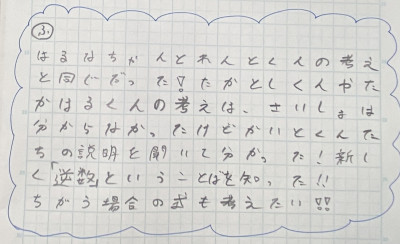 ふ
はるはちかんとれんとくんの考え
と同じだった！たかとしくんやた
かはるくんの考えは、さいしょは
分からなかったけどかいとくんた
ちの説明を聞いて分かった！新し
く「逆数」ということばを知った!!
ちがう場合の式も考えたい!!